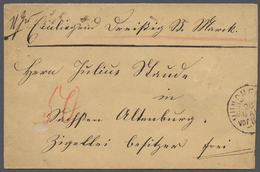 Einliegend Dreißig St. Marck.
Herrn Julius Staude
in
Sachsen Altenburg.
Ziegelei besitzer frei